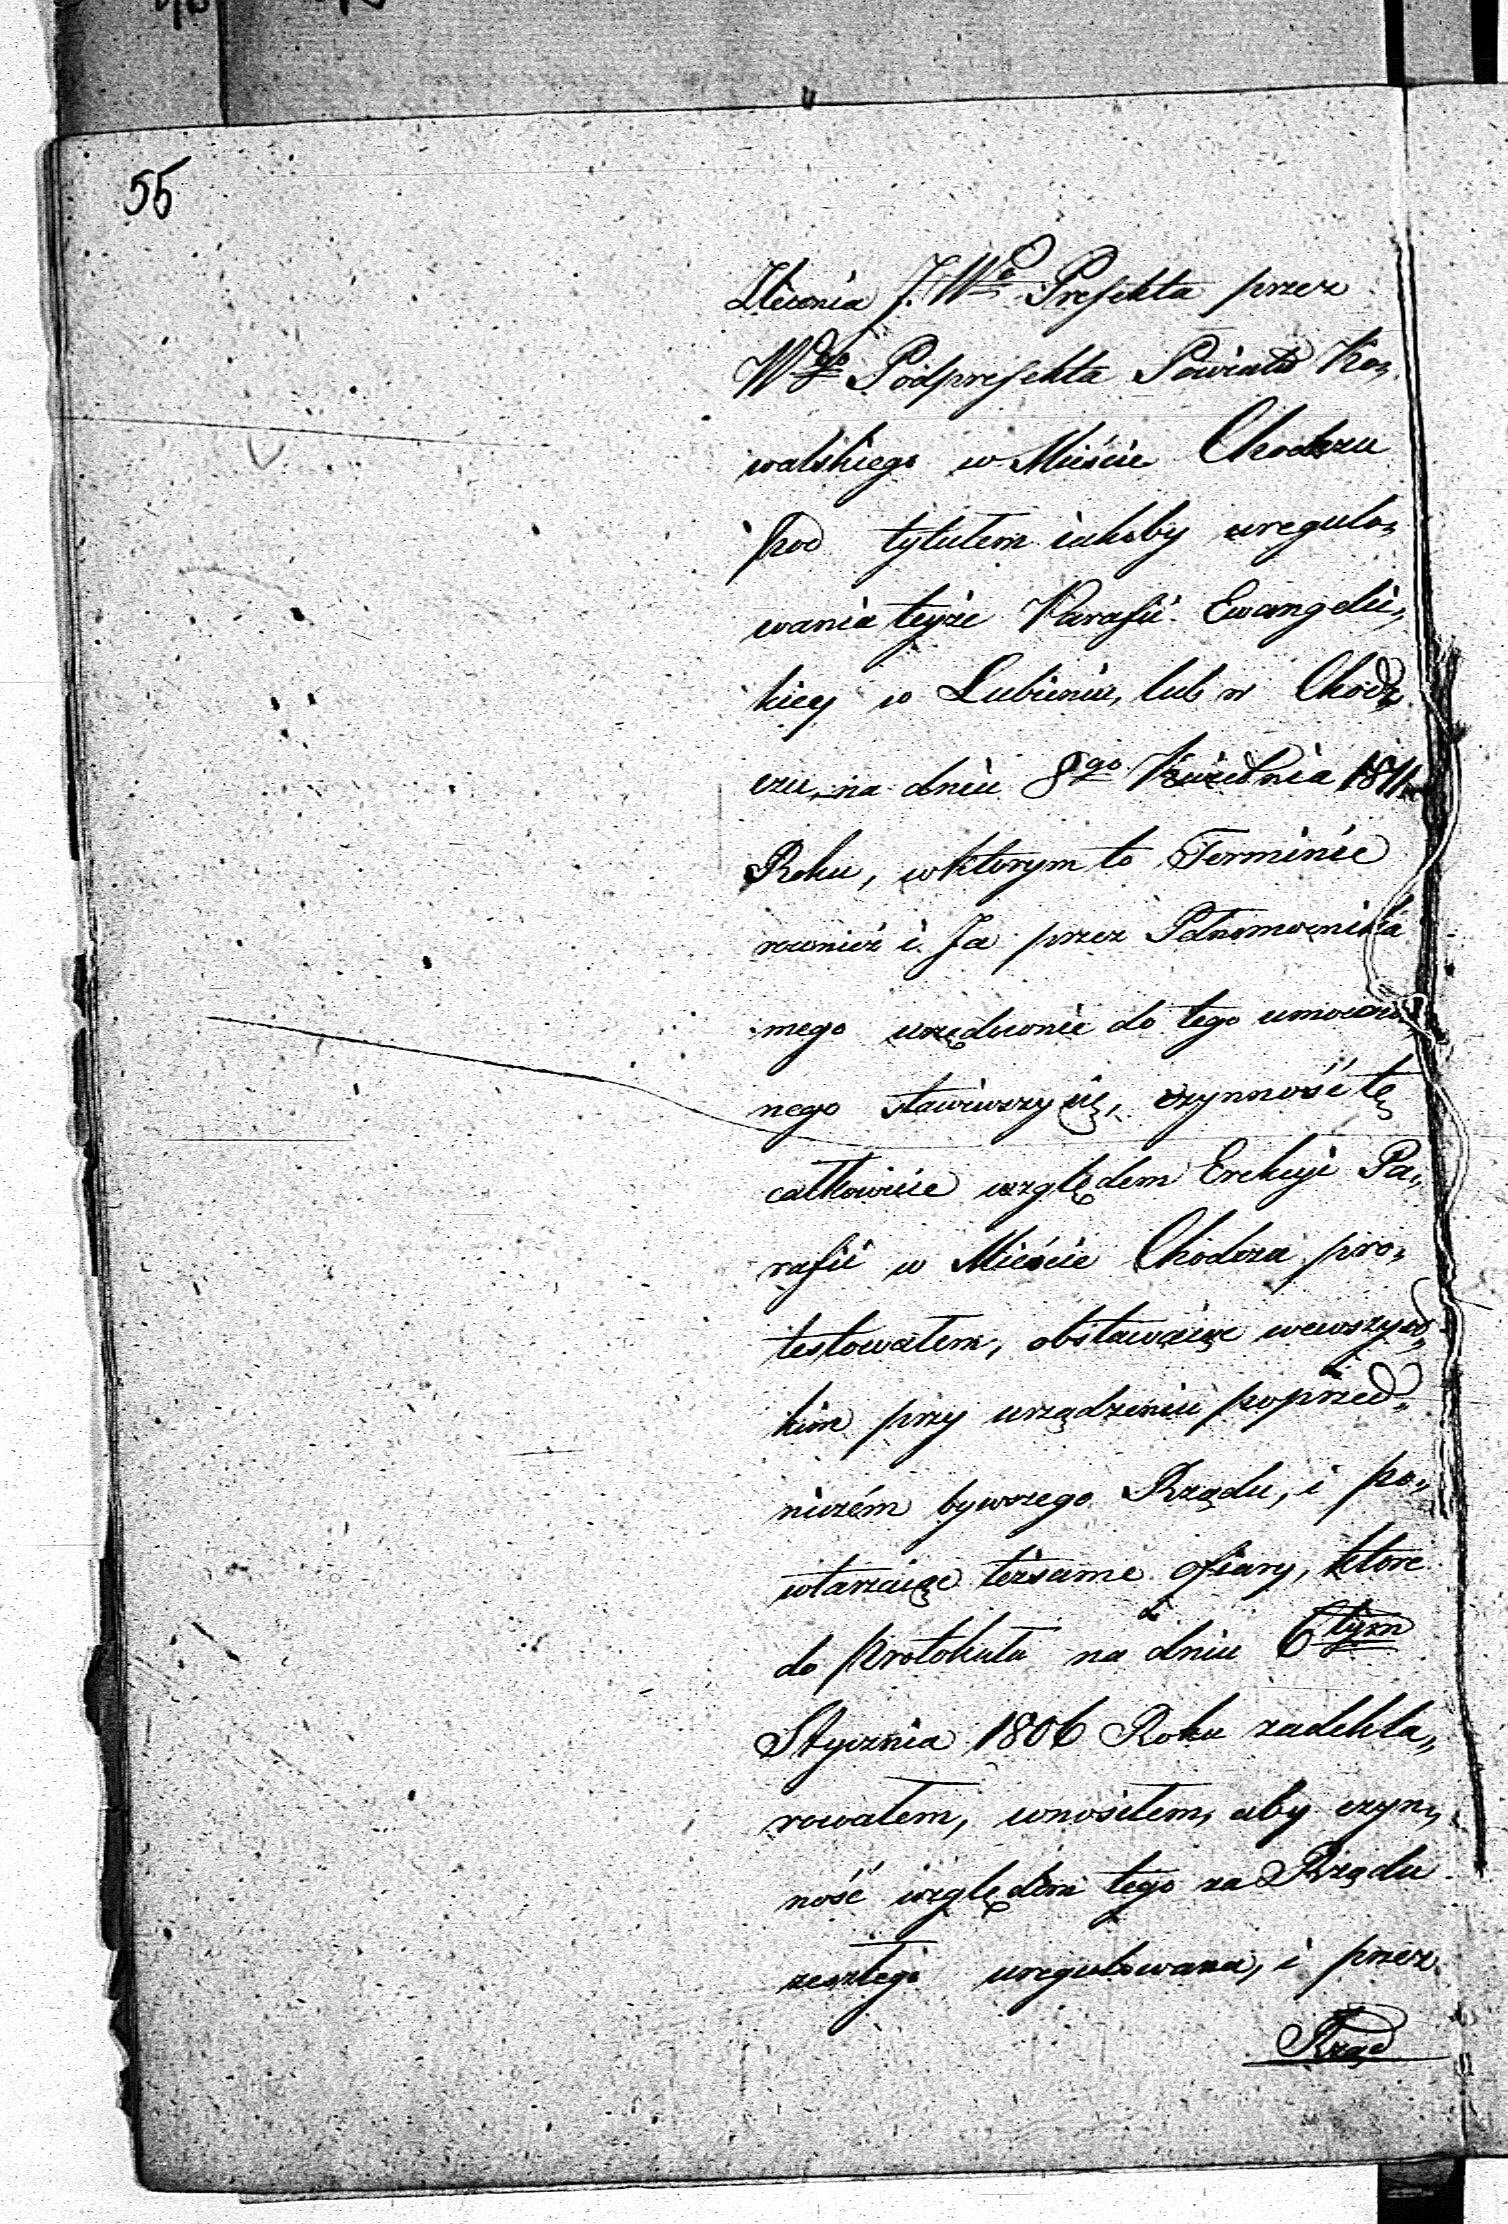 55
Zlecenia J. W⁰ Prefekta przez
Wgo Podprefekta Powiatu Ko„
walskiego w Mieście Chodczu
pod tytułem iakoby uregulo„
wania teyże Parafii Ewangelic„
kiey w Lubieniu, lub w Chod„
czu, na dniu 8go Kwietnia 1811
Roku, w ktorym to Terminie
rownież i Ja przez Pełnomocnika
mego urzędownie do tego umocowa„
nego stawiwszy się, czynność tę
całkowicie względem Erekcyi Pa„
rafii w Mieście Chodcza pro„
testowałem, obstawaiąc wewszyst„
kim przy urządzeniu poprzed„
niczém bywszego Rządu, i po„
wtarzaiąc teżsame ofiary, ktore
do Protokułu na dniu 6tym
Stycznia 1806 Roku zadekla„
rowałem, wnosiłem, aby czyn„
ność względem tego za Rządu
zeszłego uregulowana, i przez
Rząd